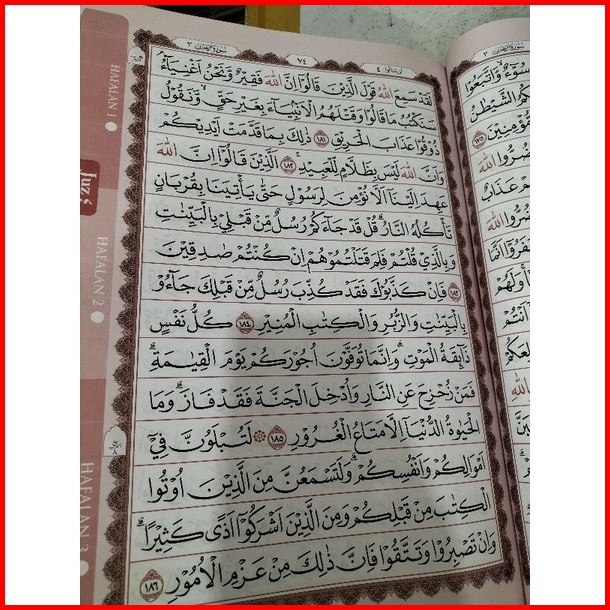 سورة ال عمران ٣
٧٤
لن تنالوا ٤
لَقَدْ سَمِعَ اللّٰهُ قَوْلَ الَّذِيْنَ قَالُوْٓا اِنَّ اللّٰهَ فَقِيْرٌ وَّنَحْنُ اَغْنِيَاۤءُ ۘ
سَنَكْتُبُ مَا قَالُوْا وَقَتْلَهُمُ الْاَنْۢبِيَاۤءَ بِغَيْرِ حَقٍّۙ وَّنَقُوْلُ
ذُوْقُوْا عَذَابَ الْحَرِيْقِ ١٨١ ذٰلِكَ بِمَا قَدَّمَتْ اَيْدِيْكُمْ
وَاَنَّ اللّٰهَ لَيْسَ بِظَلَّامٍ لِّلْعَبِيْدِۚ ١٨٢ اَلَّذِيْنَ قَالُوْٓا اِنَّ اللّٰهَ
عَهِدَ اِلَيْنَآ اَلَّا نُؤْمِنَ لِرَسُوْلٍ حَتّٰى يَأْتِيَنَا بِقُرْبَانٍ
تَأْكُلُهُ النَّارُ ۗ قُلْ قَدْ جَاۤءَكُمْ رُسُلٌ مِّنْ قَبْلِيْ بِالْبَيِّنٰتِ
وَبِالَّذِيْ قُلْتُمْ فَلِمَ قَتَلْتُمُوْهُمْ اِنْ كُنْتُمْ صٰدِقِيْنَ
١٨٣ فَاِنْ كَذَّبُوْكَ فَقَدْ كُذِّبَ رُسُلٌ مِّنْ قَبْلِكَ جَاۤءُوْ
بِالْبَيِّنٰتِ وَالزُّبُرِ وَالْكِتٰبِ الْمُنِيْرِ ١٨٤ كُلُّ نَفْسٍ
ذَاۤىِٕقَةُ الْمَوْتِۗ وَاِنَّمَا تُوَفَّوْنَ اُجُوْرَكُمْ يَوْمَ الْقِيٰمَةِ ۗ
فَمَنْ زُحْزِحَ عَنِ النَّارِ وَاُدْخِلَ الْجَنَّةَ فَقَدْ فَازَ ۗ وَمَا
الْحَيٰوةُ الدُّنْيَآ اِلَّا مَتَاعُ الْغُرُوْرِ ١٨٥ ۞ لَتُبْلَوُنَّ فِيْٓ
اَمْوَالِكُمْ وَاَنْفُسِكُمْۗ وَلَتَسْمَعُنَّ مِنَ الَّذِيْنَ اُوْتُوا
الْكِتٰبَ مِنْ قَبْلِكُمْ وَمِنَ الَّذِيْنَ اَشْرَكُوْٓا اَذًى كَثِيْرًا ۗ
وَاِنْ تَصْبِرُوْا وَتَتَّقُوْا فَاِنَّ ذٰلِكَ مِنْ عَزْمِ الْاُمُوْرِ ١٨٦
HAFALAN 1
Juz 4
HAFALAN 2
HAFALAN 3